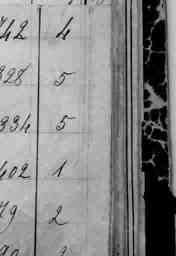 742 4
328 5
334 5
402 1
79 2